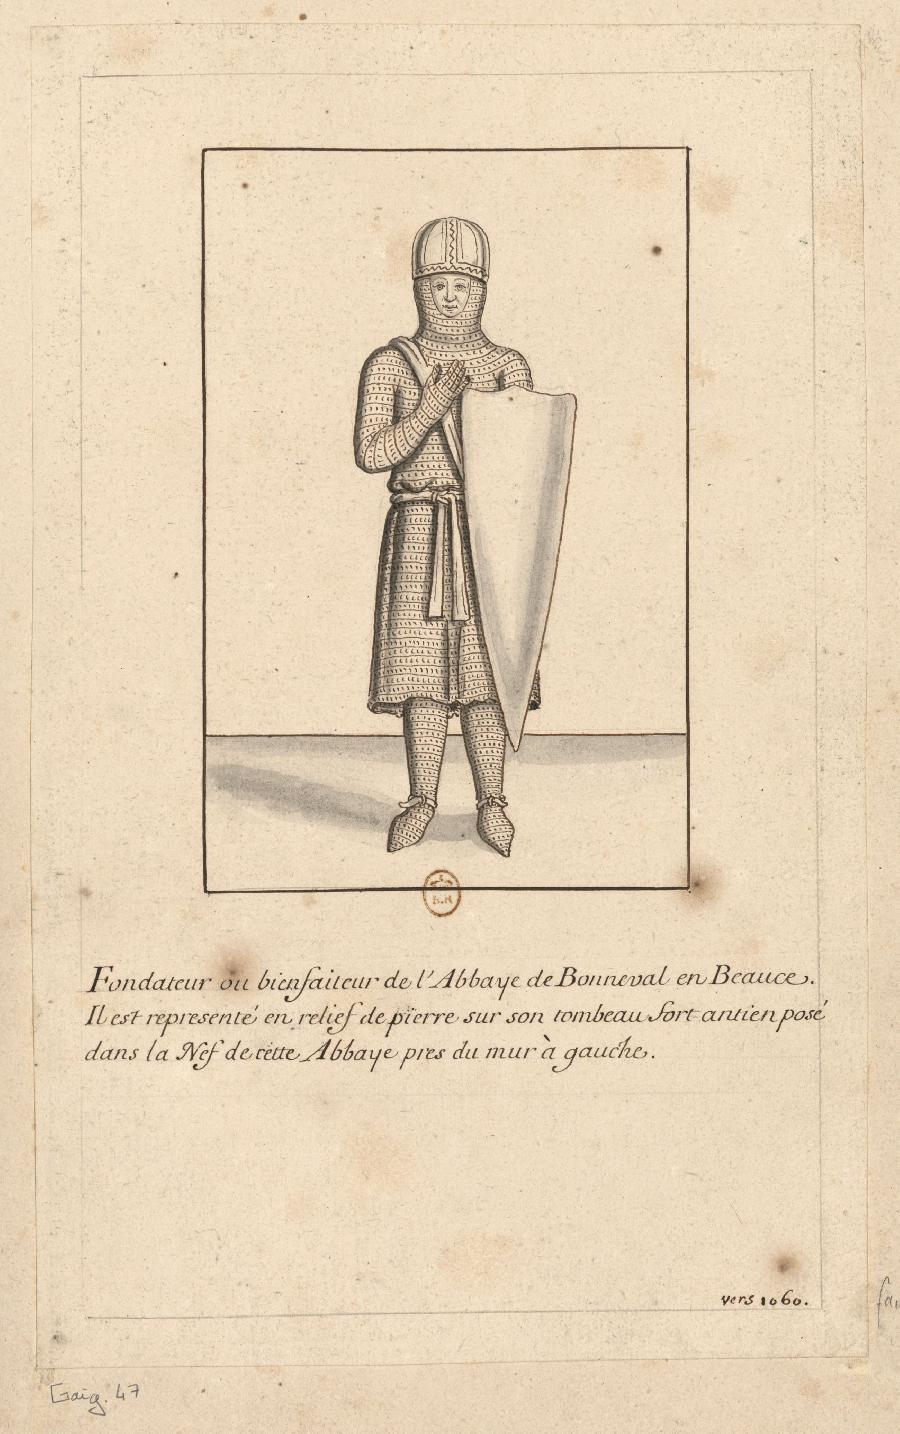 B.R
Fondateur ou bienfaiteur de l'Abbaye de Bonneval en Beauce.
Il est representé en relief de pierre sur son tombeau fort antien posé
dans la Nef de cette Abbaye pres du mur à gauche.
vers 1060.
Gaig. 47